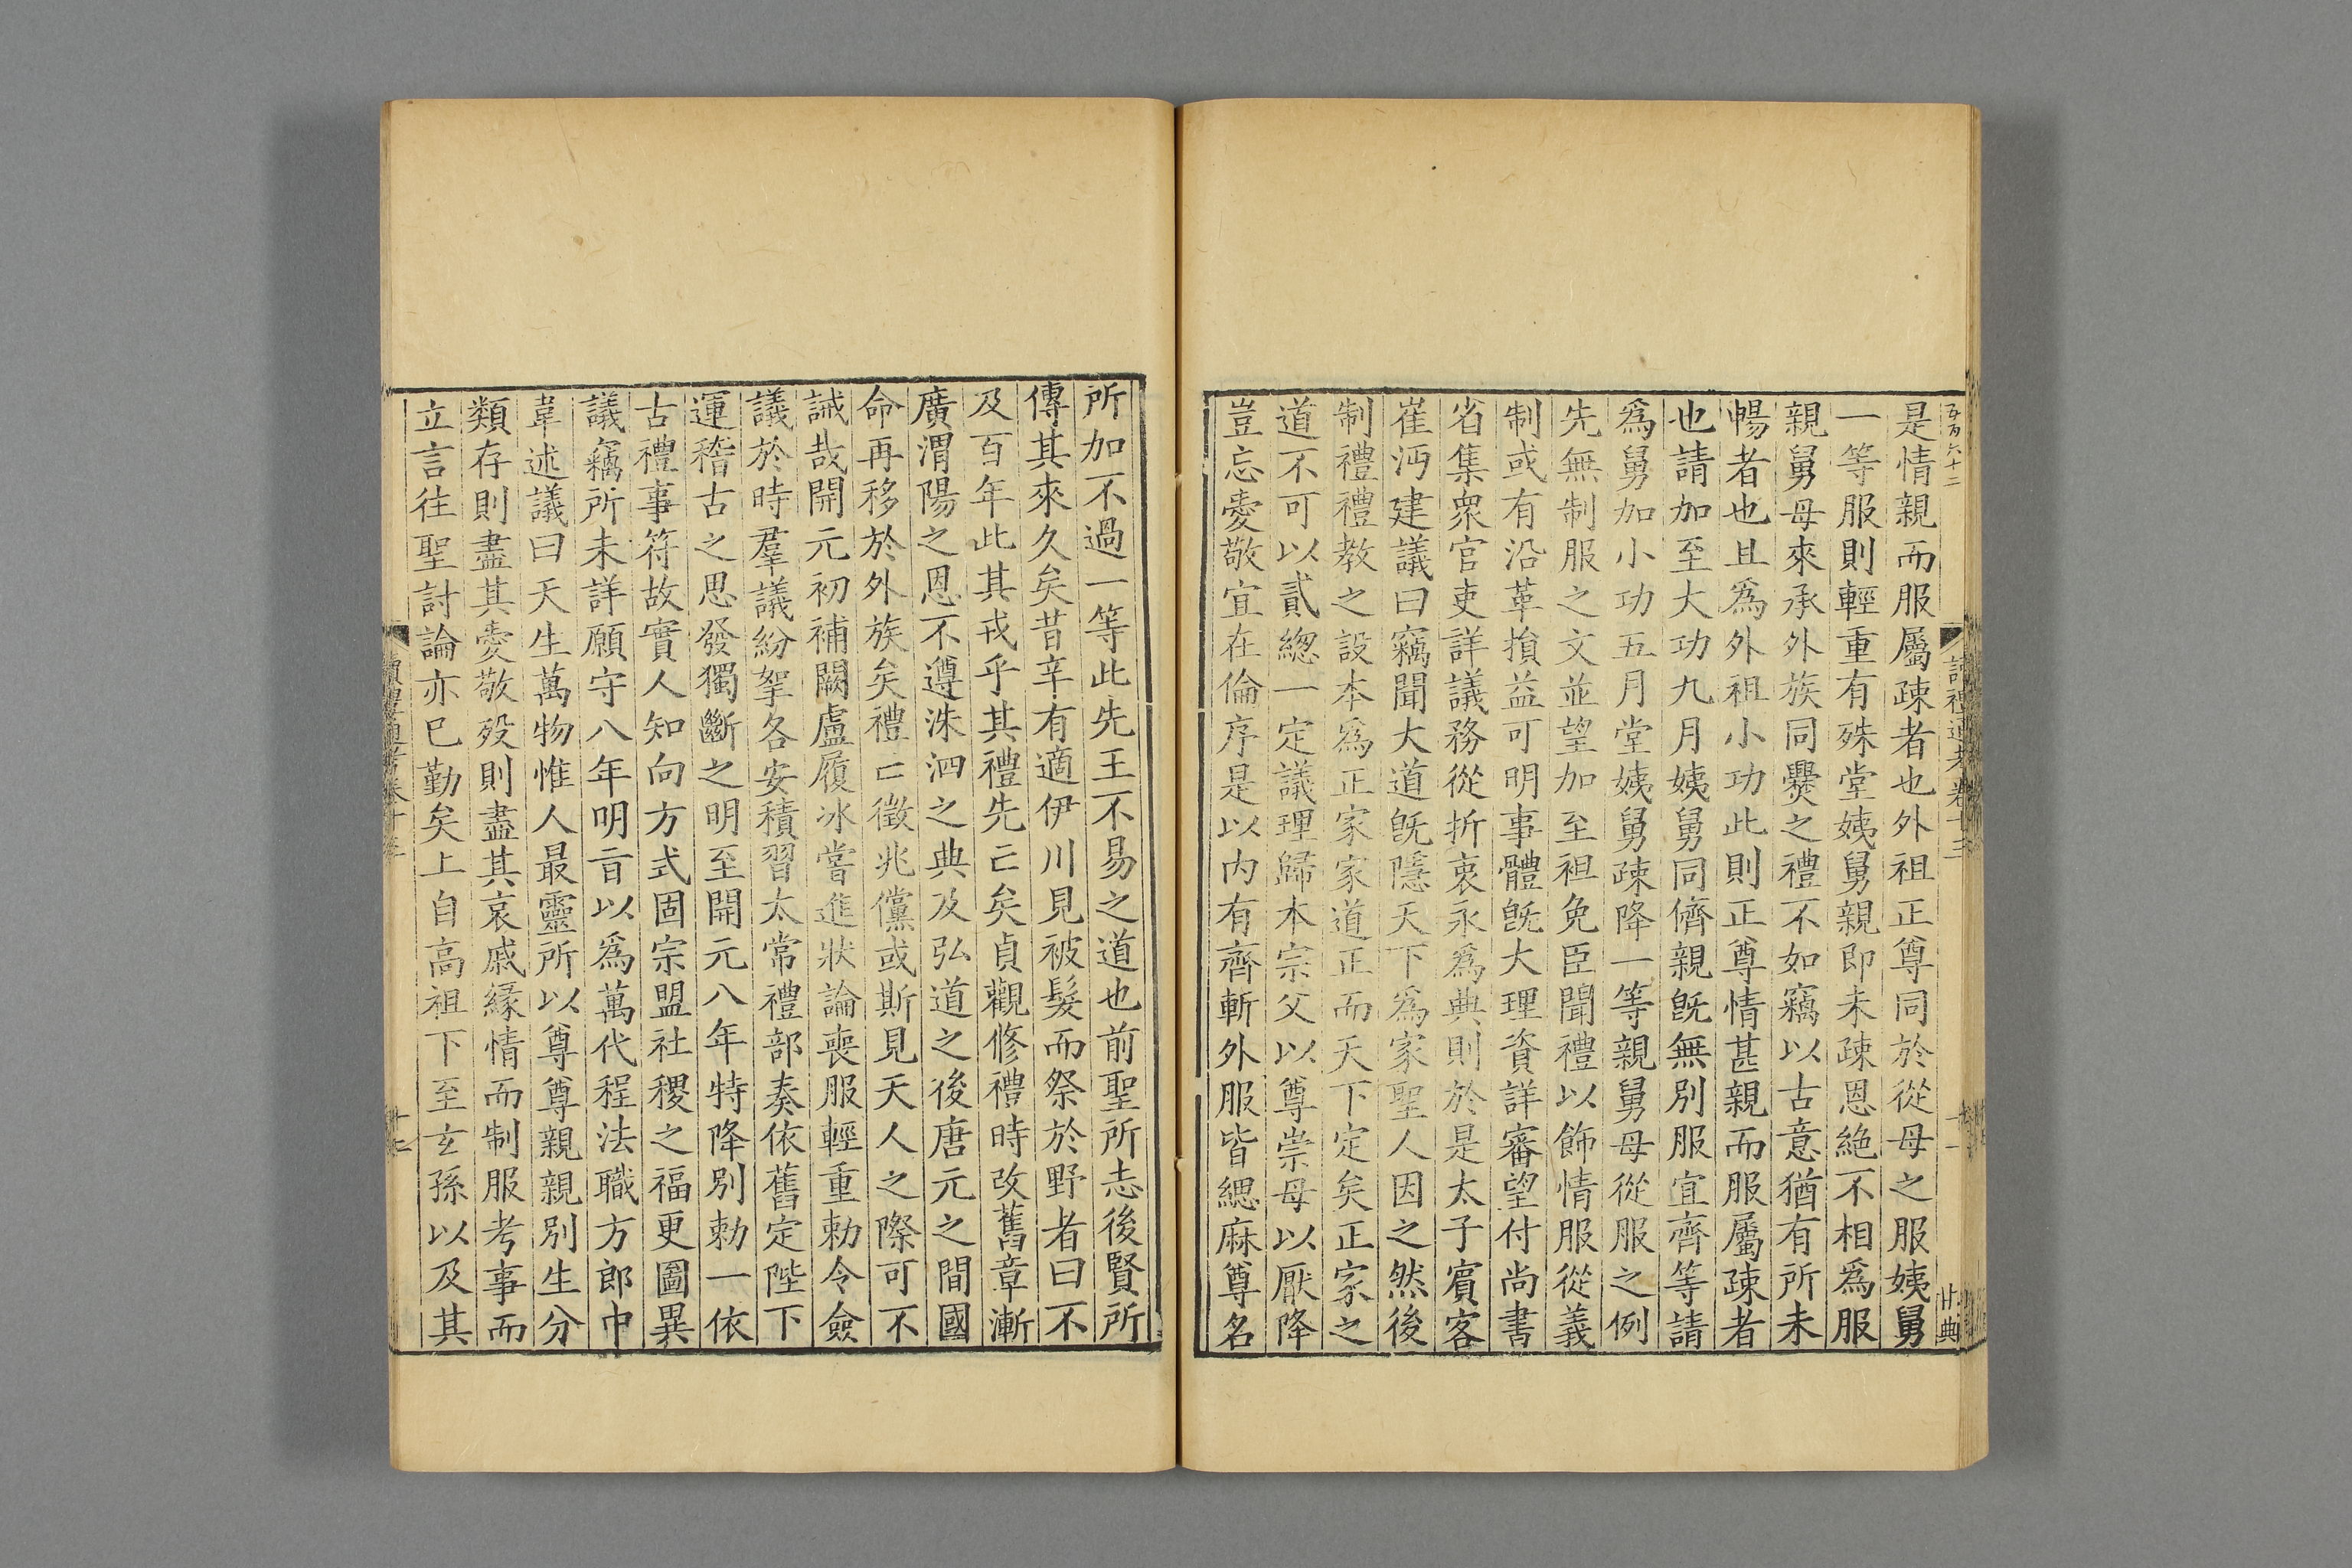 五百六十二
讀禮通考卷十三
廿典
是情親而服屬疎者也外祖正尊同於從母之服姨舅
一等服則輕重有殊堂姨舅親即未疎恩絶不相爲服
親舅母來承外族同爨之禮不如竊以古意猶有所未
暢者也且爲外祖小功此則正尊情甚親而服屬疎者
也請加至大功九月姨舅同儕親旣無別服宜齊等請
爲舅加小功五月堂姨舅疎降一等親舅母從服之例
先無制服之文並望加至袒免臣聞禮以飾情服從義
制或有沿革損益可明事體旣大理資詳審望付尚書
省集衆官吏詳議務從折衷永爲典則於是太子賓客
崔沔建議曰竊聞大道旣隱天下爲家聖人因之然後
制禮禮教之設本爲正家家道正而天下定矣正家之
道不可以貳緫一定議理歸本宗父以尊崇母以厭降
豈忘愛敬宜在倫序是以内有齊斬外服皆緦麻尊名
所加不過一等此先王不易之道也前聖所志後賢所
傳其來久矣昔辛有適伊川見被髮而祭於野者曰不
及百年此其戎乎其禮先亡矣貞觀修禮時改舊章漸
廣渭陽之恩不遵洙泗之典及弘道之後唐元之間國
命再移於外族矣禮亡徵兆儻或斯見天人之際可不
誡哉開元初補闕盧履冰嘗進狀論喪服輕重勅令僉
議於時羣議紛挐各安積習太常禮部奏依舊定陛下
運稽古之思發獨斷之明至開元八年特降別勅一依
古禮事符故實人知向方式固宗盟社稷之福更圖異
議竊所未詳願守八年明㫖以爲萬代程法職方郎中
韋述議曰天生萬物惟人最靈所以尊尊親親別生分
類存則盡其愛敬歿則盡其哀戚緣情而制服考事而
立言往聖討論亦已勤矣上自高祖下至玄孫以及其
讀禮通考卷十三